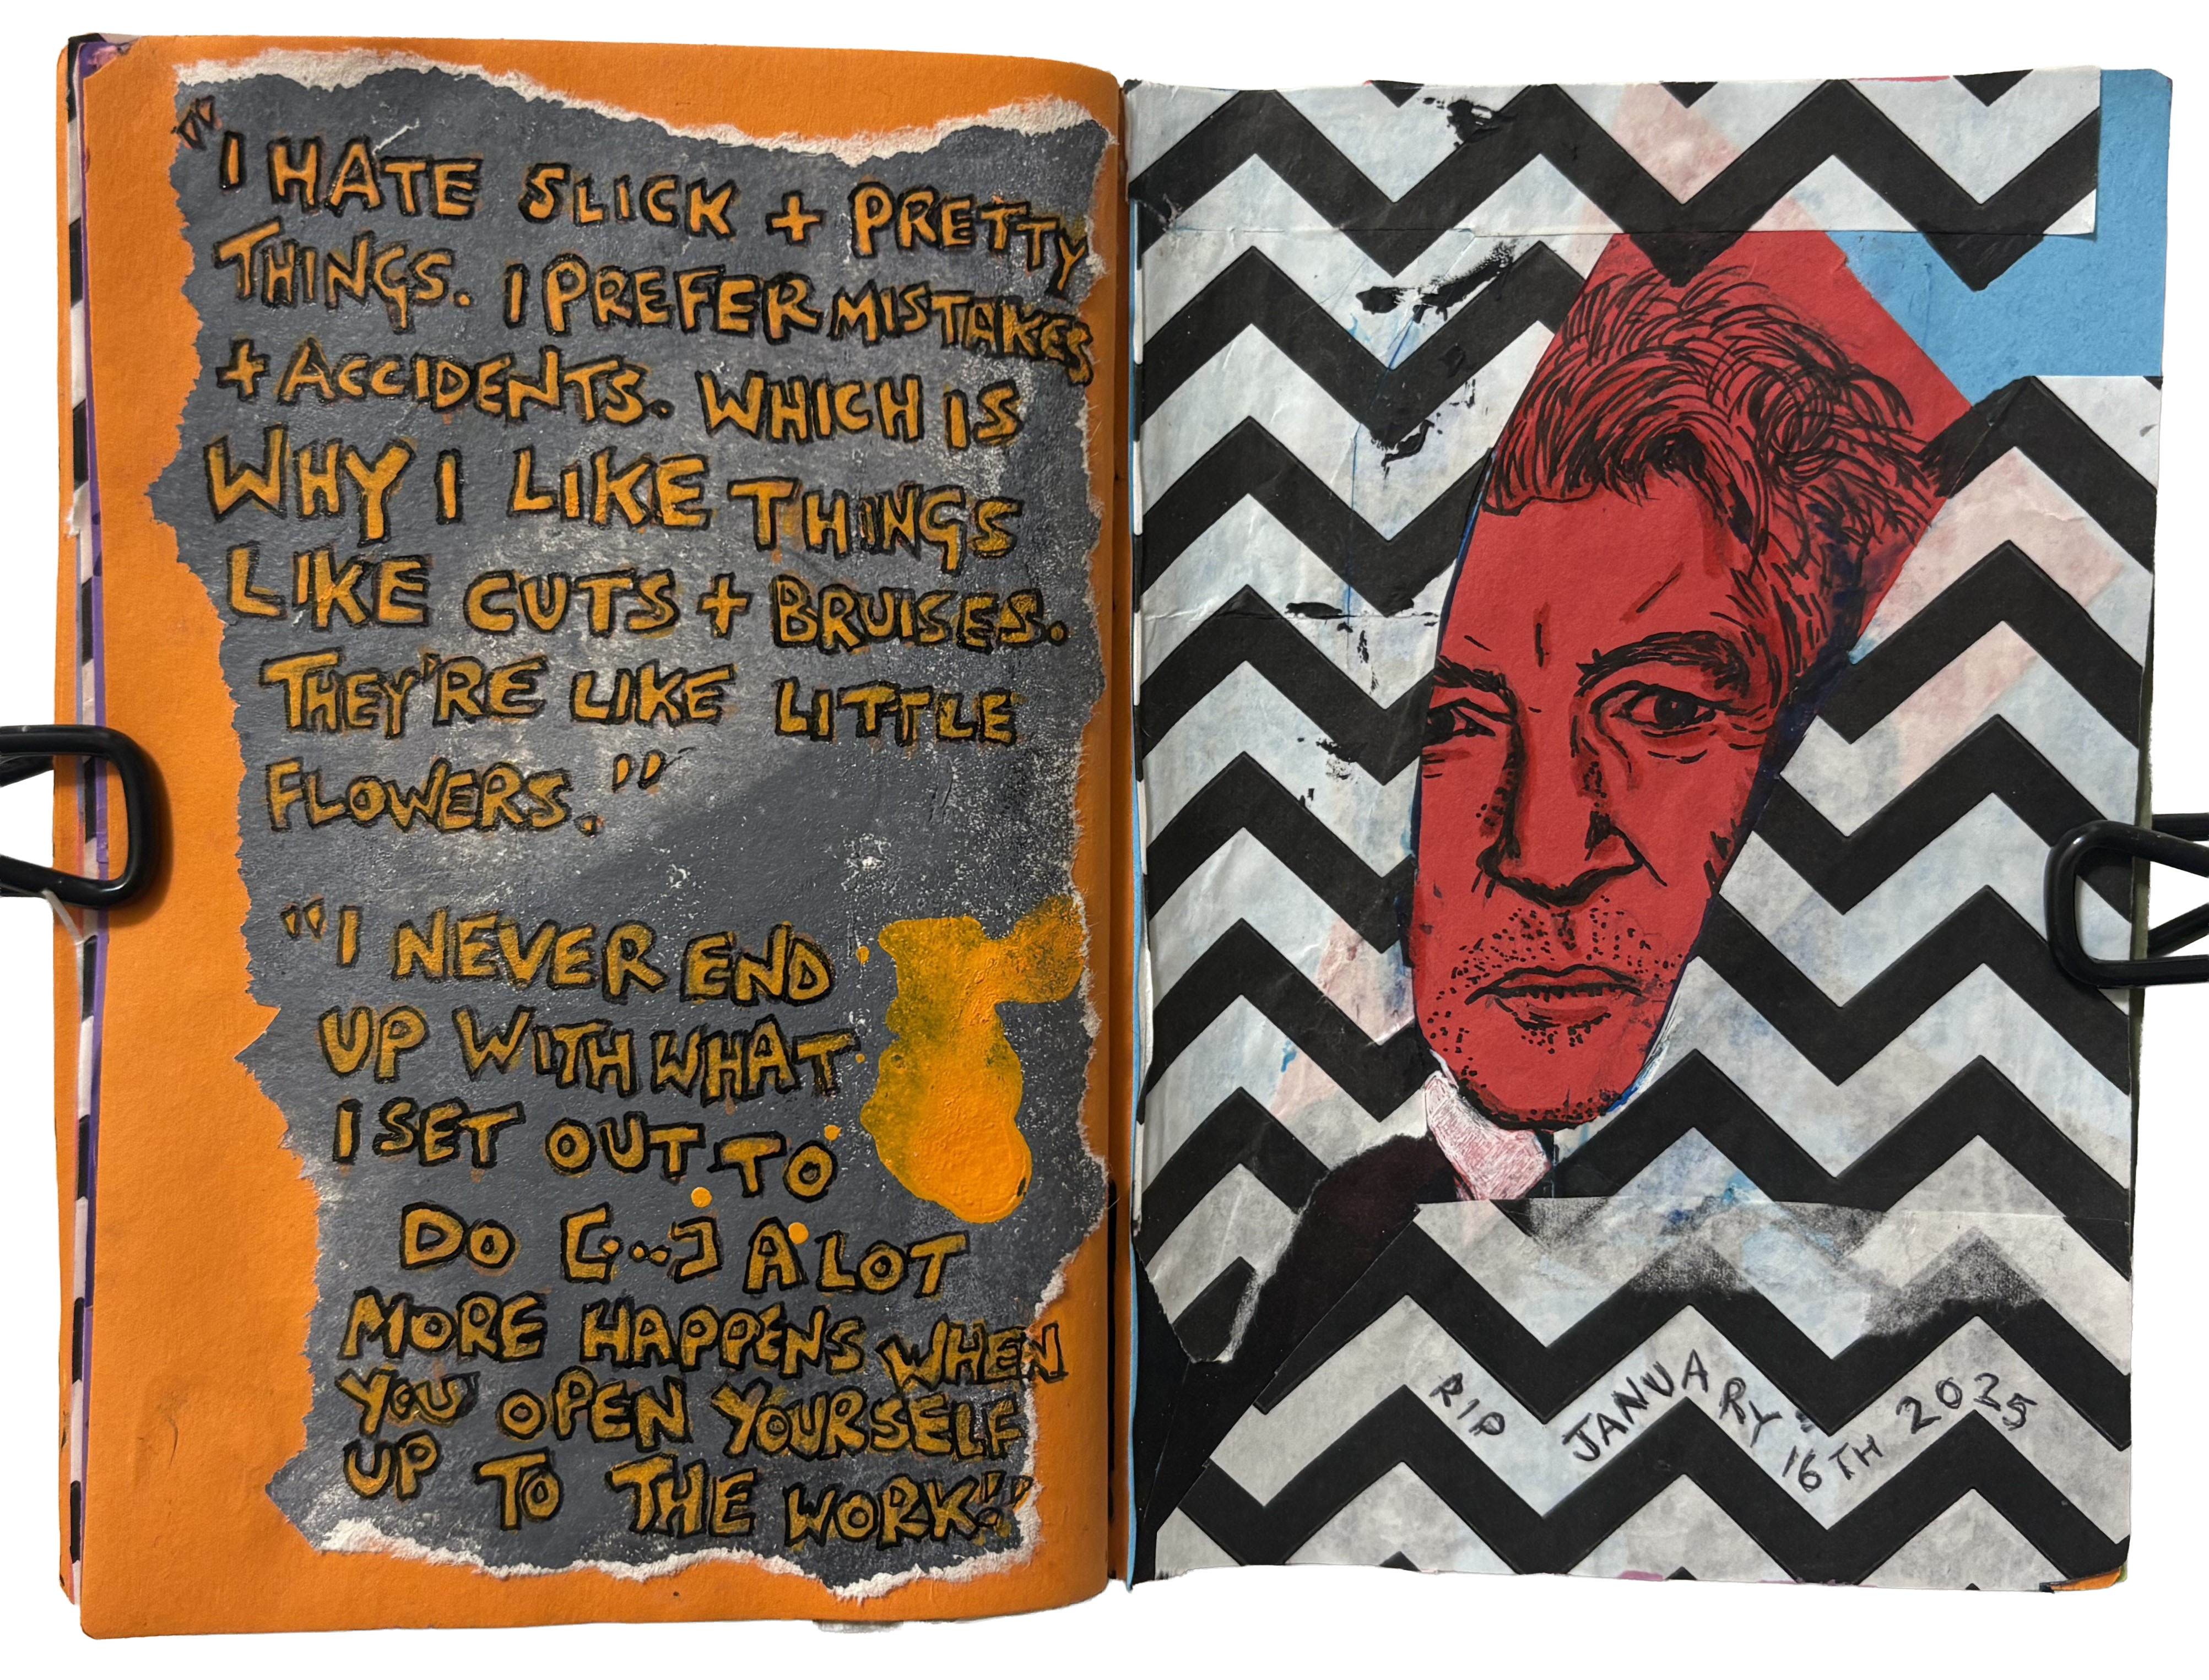 "I HATE SLICK + PRETTY
THINGS. I PREFER MISTAKES
+ ACCIDENTS. WHICH IS
WHY I LIKE THINGS
LIKE CUTS + BRUISES.
THEY'RE LIKE LITTLE
FLOWERS."
"I NEVER END
UP WITH WHAT
I SET OUT TO
DO [...] A LOT
MORE HAPPENS WHEN
YOU OPEN YOURSELF
UP TO THE WORK!"
RIP JANUARY 16TH 2025